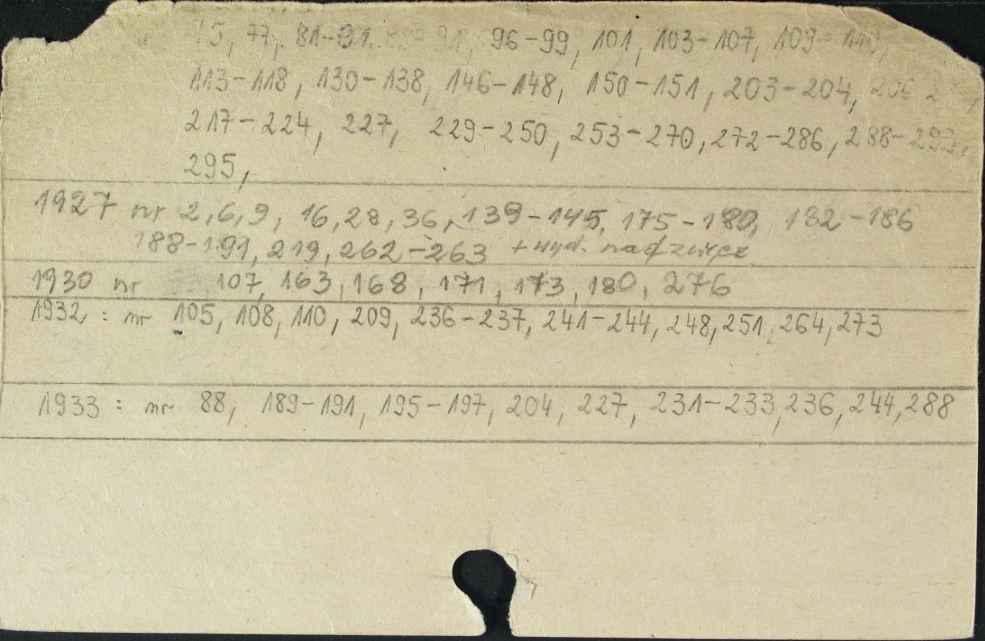 77, 81-91, 96-99, 101, 103-107, 109-
113-118, 130-138, 146-148, 150-151, 203-204,
217-224, 227, 229-250, 253-270, 272-286, 288-
295,
1927 nr 2, 6, 9, 16, 28, 36, 139-145, 175-180, 182-186
188-191, 219, 262-263 + wyd. nadzwycz
1930 nr 107, 163, 168, 171, 173, 180, 276
1932 : nr 105, 108, 110, 209, 236-237, 241-244, 248, 251, 264, 273
1933 : nr 88, 189-191, 195-197, 204, 227, 231-233, 236, 244, 288